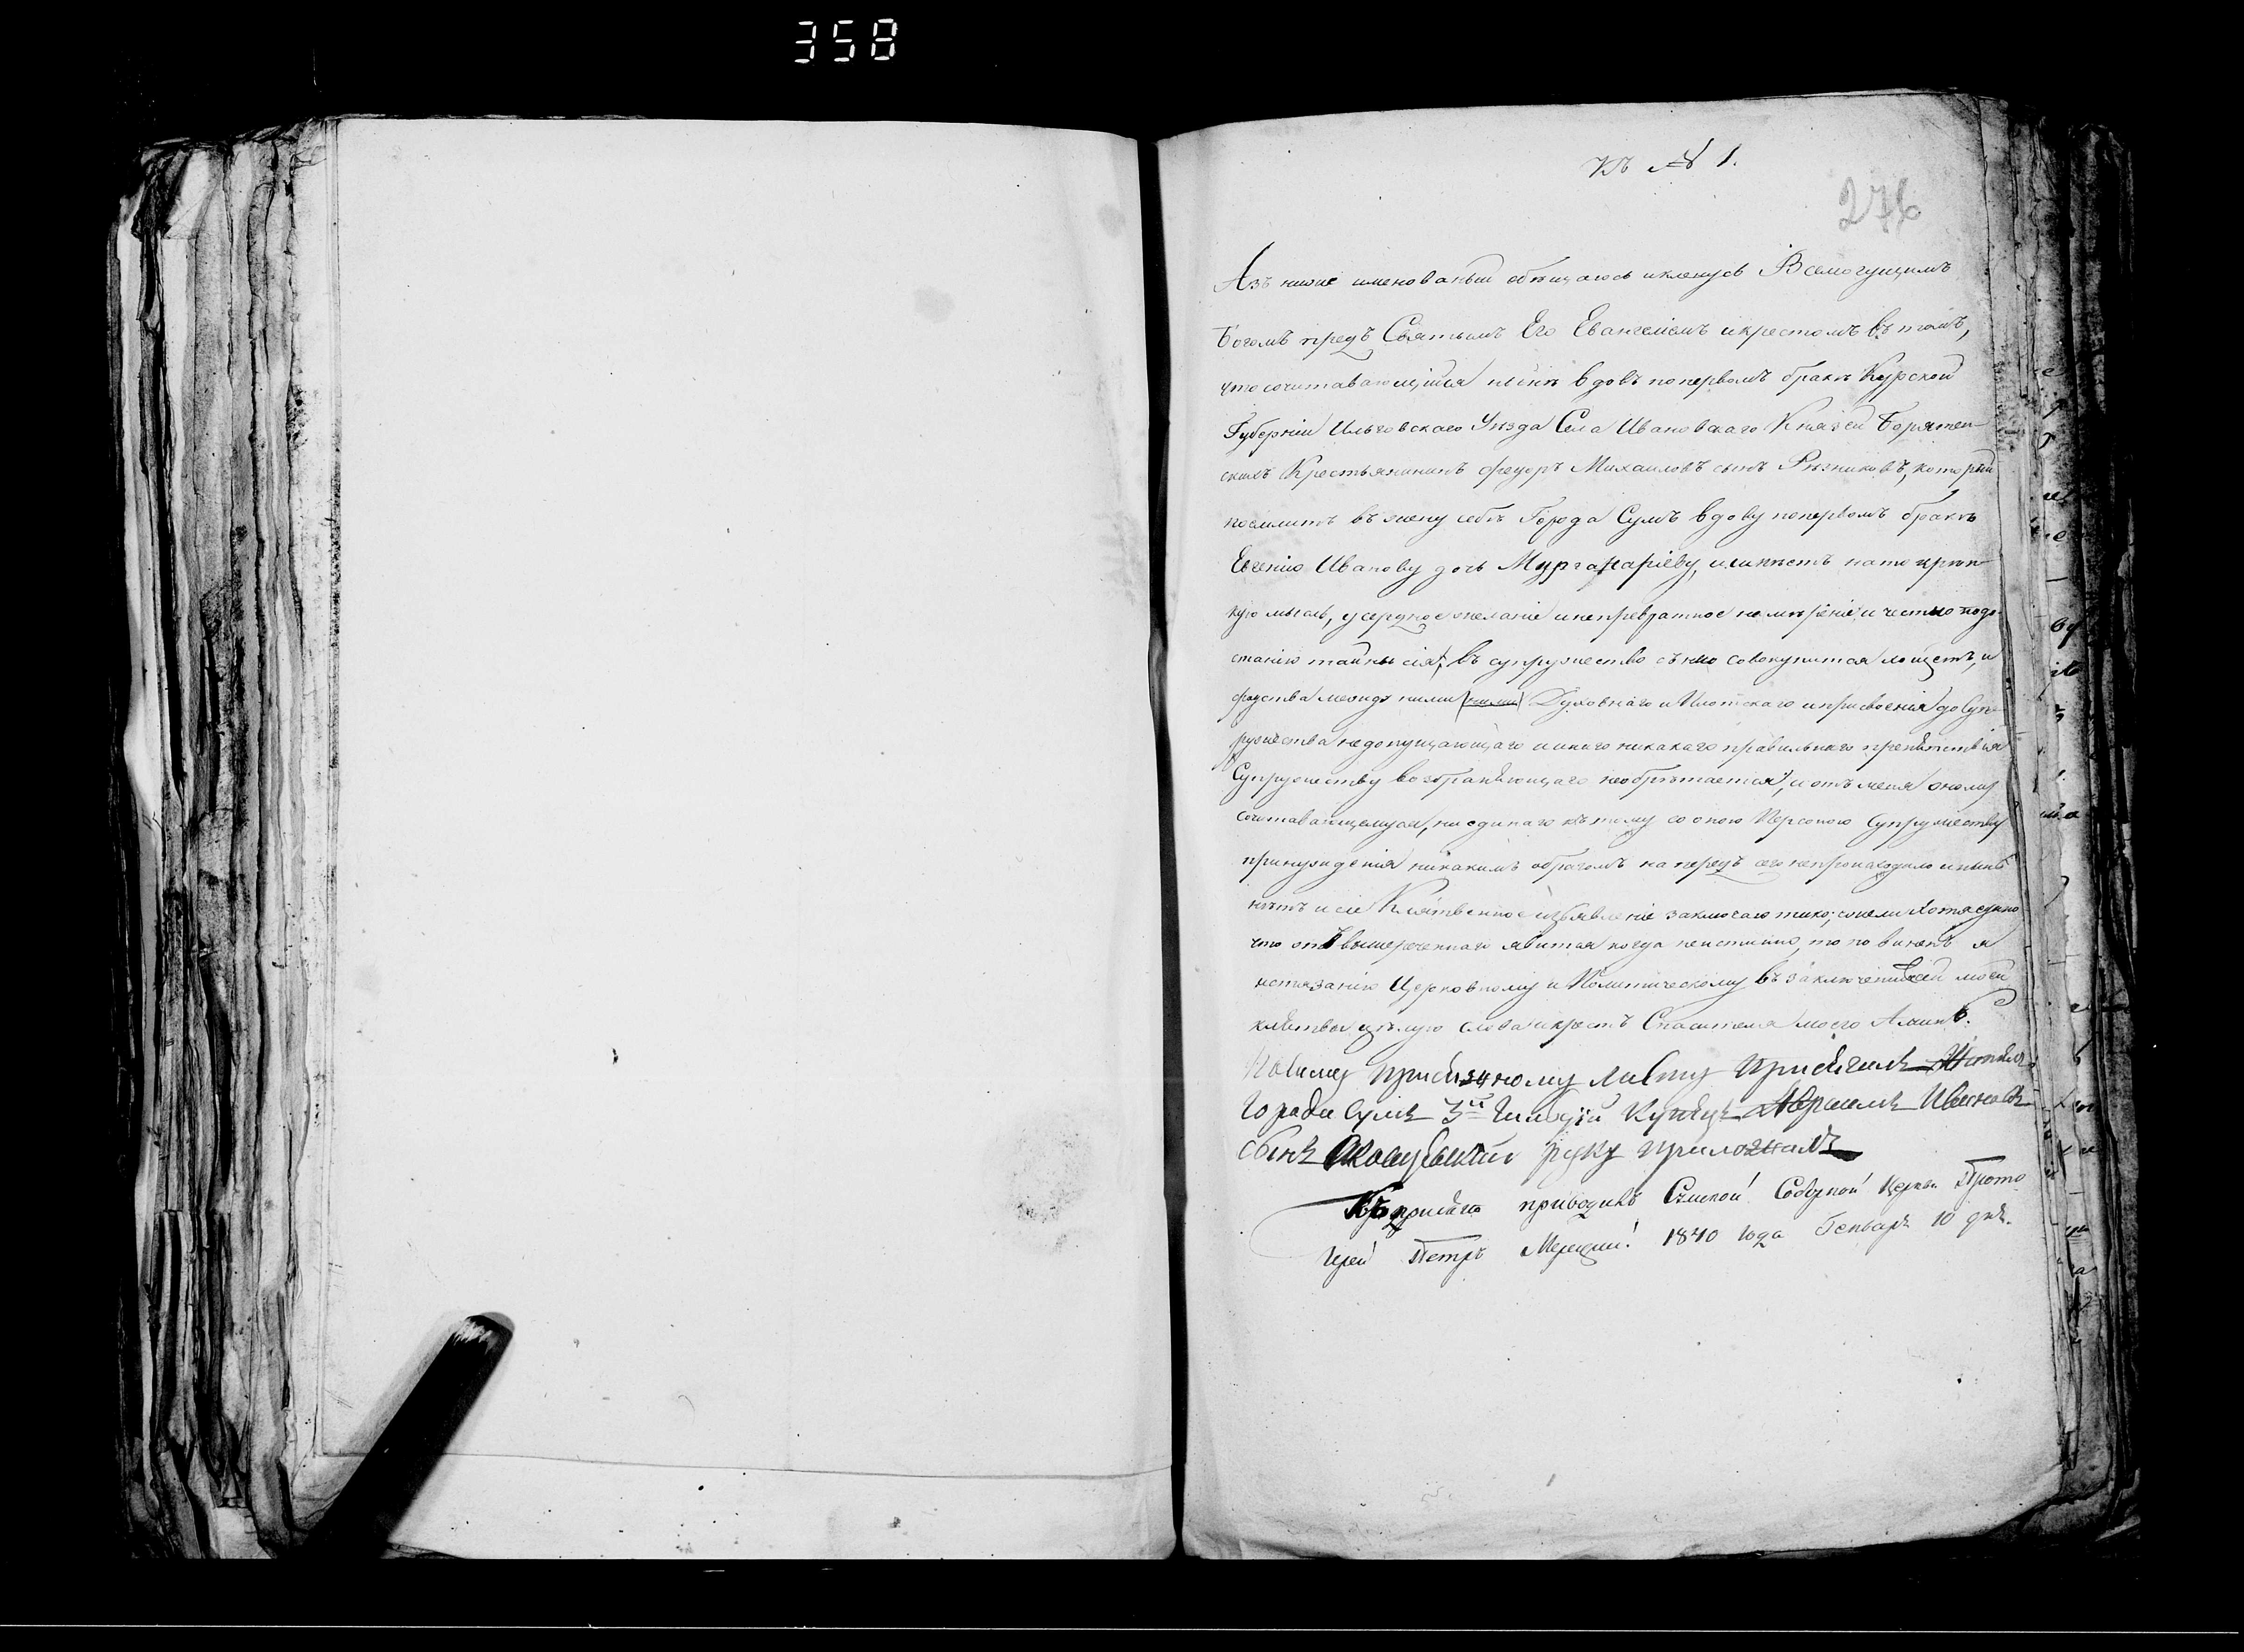 358
Къ № 1.
276
Азъ ниже именованый обѣщаюсь и кленусь Всемогущимъ
Богомъ предъ Святымъ Его Евангелiемъ и крестомъ въ томъ,
что сочитавающiйся нынѣ вдовъ по первомъ бракѣ Курской
Губернiи Ильговскаго Уѣзда Села Ивановскаго Князей Борятен-
скихъ Крестьянинъ Федоръ Михаиловъ сынъ Рѣзниковъ, который
поемлитъ въ жену себѣ Города Сумъ вдову по первомъ бракѣ
Евгенiю Иванову дочь и имѣетъ на то крѣп-
кую мысль, усердное желанiе и непревратное намѣренiе и честно по до-
станiю тайны сея, въ супружество съ нею совокупится можетъ, и
родства между ними Духовнаго и Плотскаго и присвоенiя до Суп-
ружества недопущающаго и инаго никакаго правильнаго препятствiя
Супружеству возбраняющаго необрѣтается, и отъ меня оному
сочитавающемуся, ни единаго къ тому со оною Персоною Супружеству
принужденiя никакимъ образомъ на передъ сего непроисходило и нынѣ
нѣтъ и сiе Клятвенное изъявленiе заключаю тако; ежели хотя едино
что отъ вышереченнаго явится когда неистинно, то повиненъ я
истязанiю Церковному и Политическому въ заключенiе сей моей
клятвы цѣлую слова и крестъ Спасителя моего Аминь.
По сему присяжному листу присягалъ
города Сумъ 3й гилдiи купецъ Абрамъ Ивановъ
сынъ руку приложилъ
Къ присяги приводилъ Сумской Соборной Церкви Прото
iерей Петръ 1840 года Генваря 10 дня.